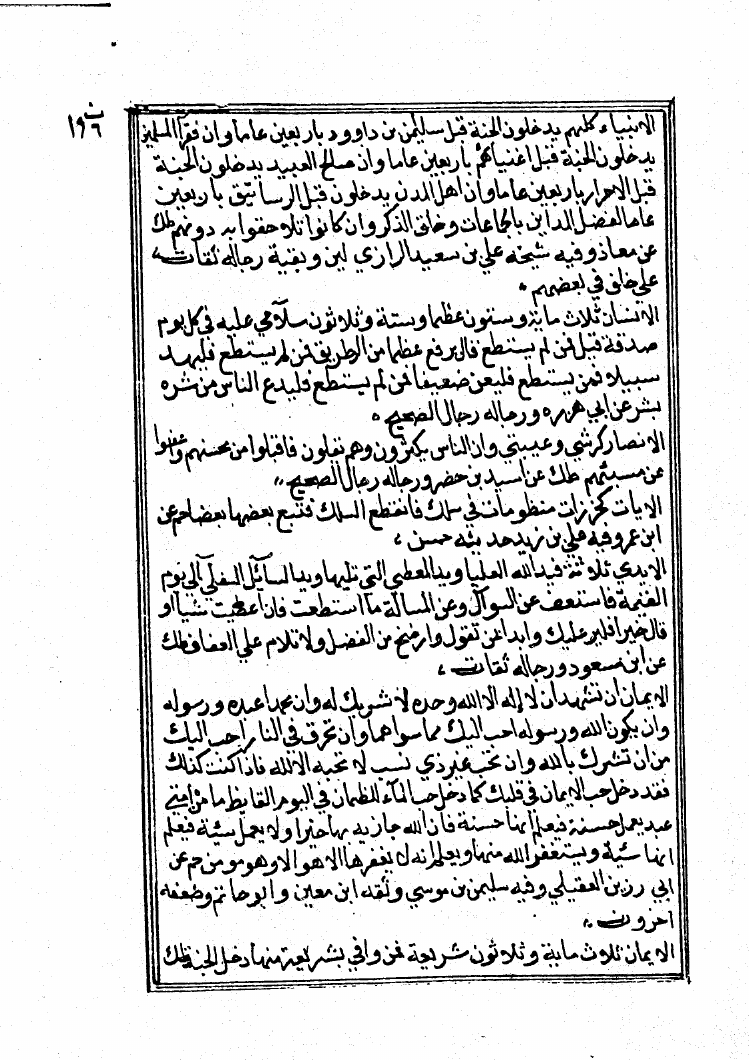 ١٩٦
الانبياء كلهم يدخلون الجنة قبل سليمن بن داوود باربعين عاما وان فقرآ المسلمين
يدخلون الجنة قبل اغنيائهم باربعين عاما وان صالح العبيد يدخلون الجنة
قبل الاحرار باربعين عاما وان اهل المدن يدخلون قبل الرساتيق باربعين
عاما لفضل المداين بالجماعات وخلق الذكر وان كانوا تلاحقوا به دونهم طك
عن معاذ وفيه شيخه علي بن سعيد الرازي لين وبقية رجاله ثقات
على خلق في بعضهم
الانسان ثلاث ماية وستون عظما وستة وثلاثون سلامي عليه في كل يوم
صدقة قيل فمن لم يستطع قال يرفع عظما من الطريق فمن لم يستطع فليهد
سبيلا فمن يستطع فليعن ضعيفا فمن لم يستطع فليدع الناس من شره
بشر عن ابي هريره ورجاله رجال الصحيح
الانصار كرشي وعيبتي وان الناس يكثرون وهم يقلون فاقبلوا من محسنهم واعفوا
عن مسيئهم طك عن اسيد بن حضير ورجاله رجال الصحيح
الايات كخرزات منظومات في سلك فانقطع السلك فتبع بعضها بعضا حم عن
ابن عمر وفيه علي بن زيد حديثه حسن
الايدي ثلاثة فيد الله العليا ويد المعطي التي تليها ويد السآئل السفلي الى يوم
القيمة فاستعف عن السوآل وعن المسالة ما استطعت فان اعطيت شيا او
قال خيرا فلير عليك وابدا بمن تعول وارضخ من الفضل ولا تلام علي العفاف طك
عن ابن مسعود ورجاله ثقات
الايمان ان تشهد ان لا اله الا الله وحده لا شريك له وان محمدا عبده ورسوله
وان يكون الله ورسوله احب اليك مما سواهما وان تحرق في النار احب اليك
من ان تشرك بالله وان تحب غير ذي نسب لا تحبه الا لله فاذا كنت كذلك
فقد دخل حب الايمان في قلبك كما دخل حب المآء للظمان في اليوم القايظ ما من امتي
عبد يعمل حسنة فيعلم انها حسنة فان الله جازيه بها خيرا ولا يعمل سيئة فيعلم
انها سيئة ويستغفر الله منها ويعلم انه لا يغفرها الا هو الا وهو مومن حم عن
ابي رزين العقيلي وفيه سليمن بن موسي وثقه ابن معين وابو حاتم وضعفه
اخرون
الايمان ثلاث ماية وثلاثون شريعة فمن وافي بشريعة منها دخل الجنة طك